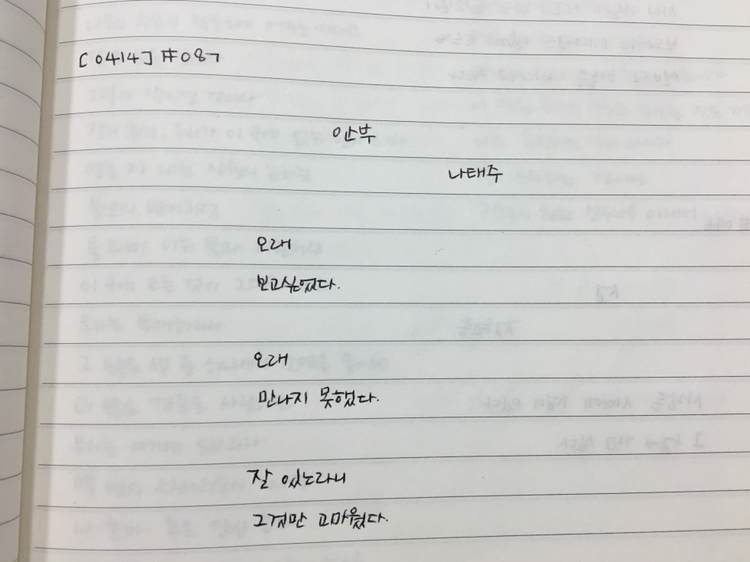 [0414] #087
안부
나태주
오래
보고싶었다.
오래
만나지 못했다.
잘 있노라니
그것만 고마웠다.